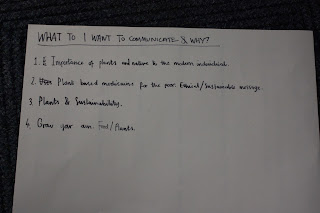 WHAT TO I WANT TO COMMUNICATE & WHY?
1. Importance of plants and nature to the modern individual.
2. Plant based medicines for the poor. Ethical/Sustainable message.
3. Plants & Sustainability.
4. Grow your own Food/Plants.